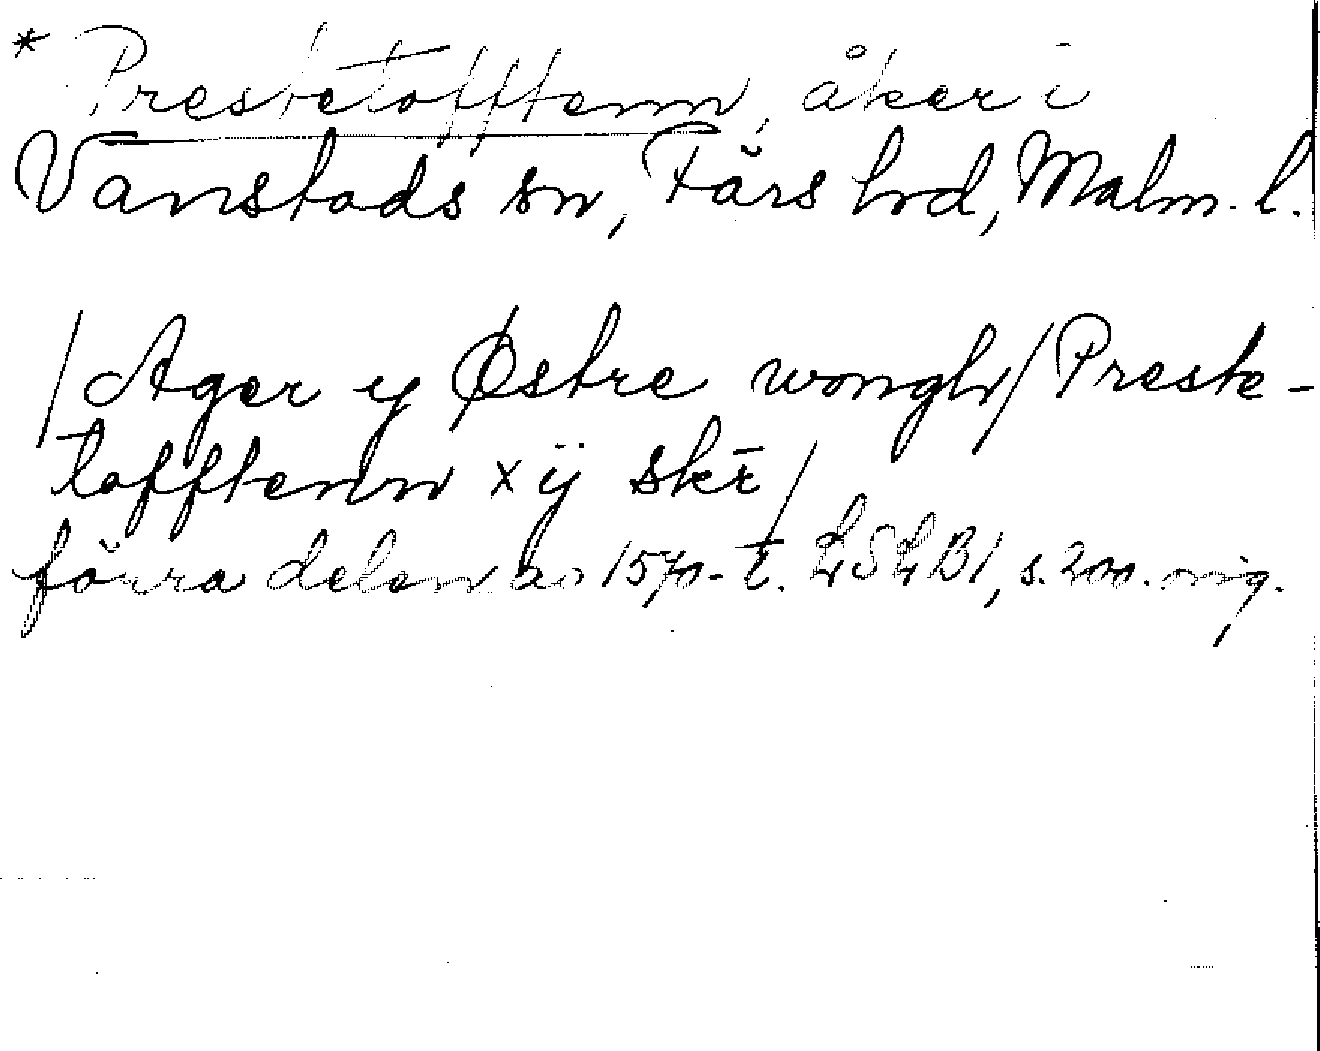 * Prestetofftenn, åker i
Vanstads sn, Färs hrd, Malm. l.
/Ager y Østre wongh/ Preste-
tofftenn xij skr̄/
förra delen av 1570-t. LSLB1, s. 200. orig.